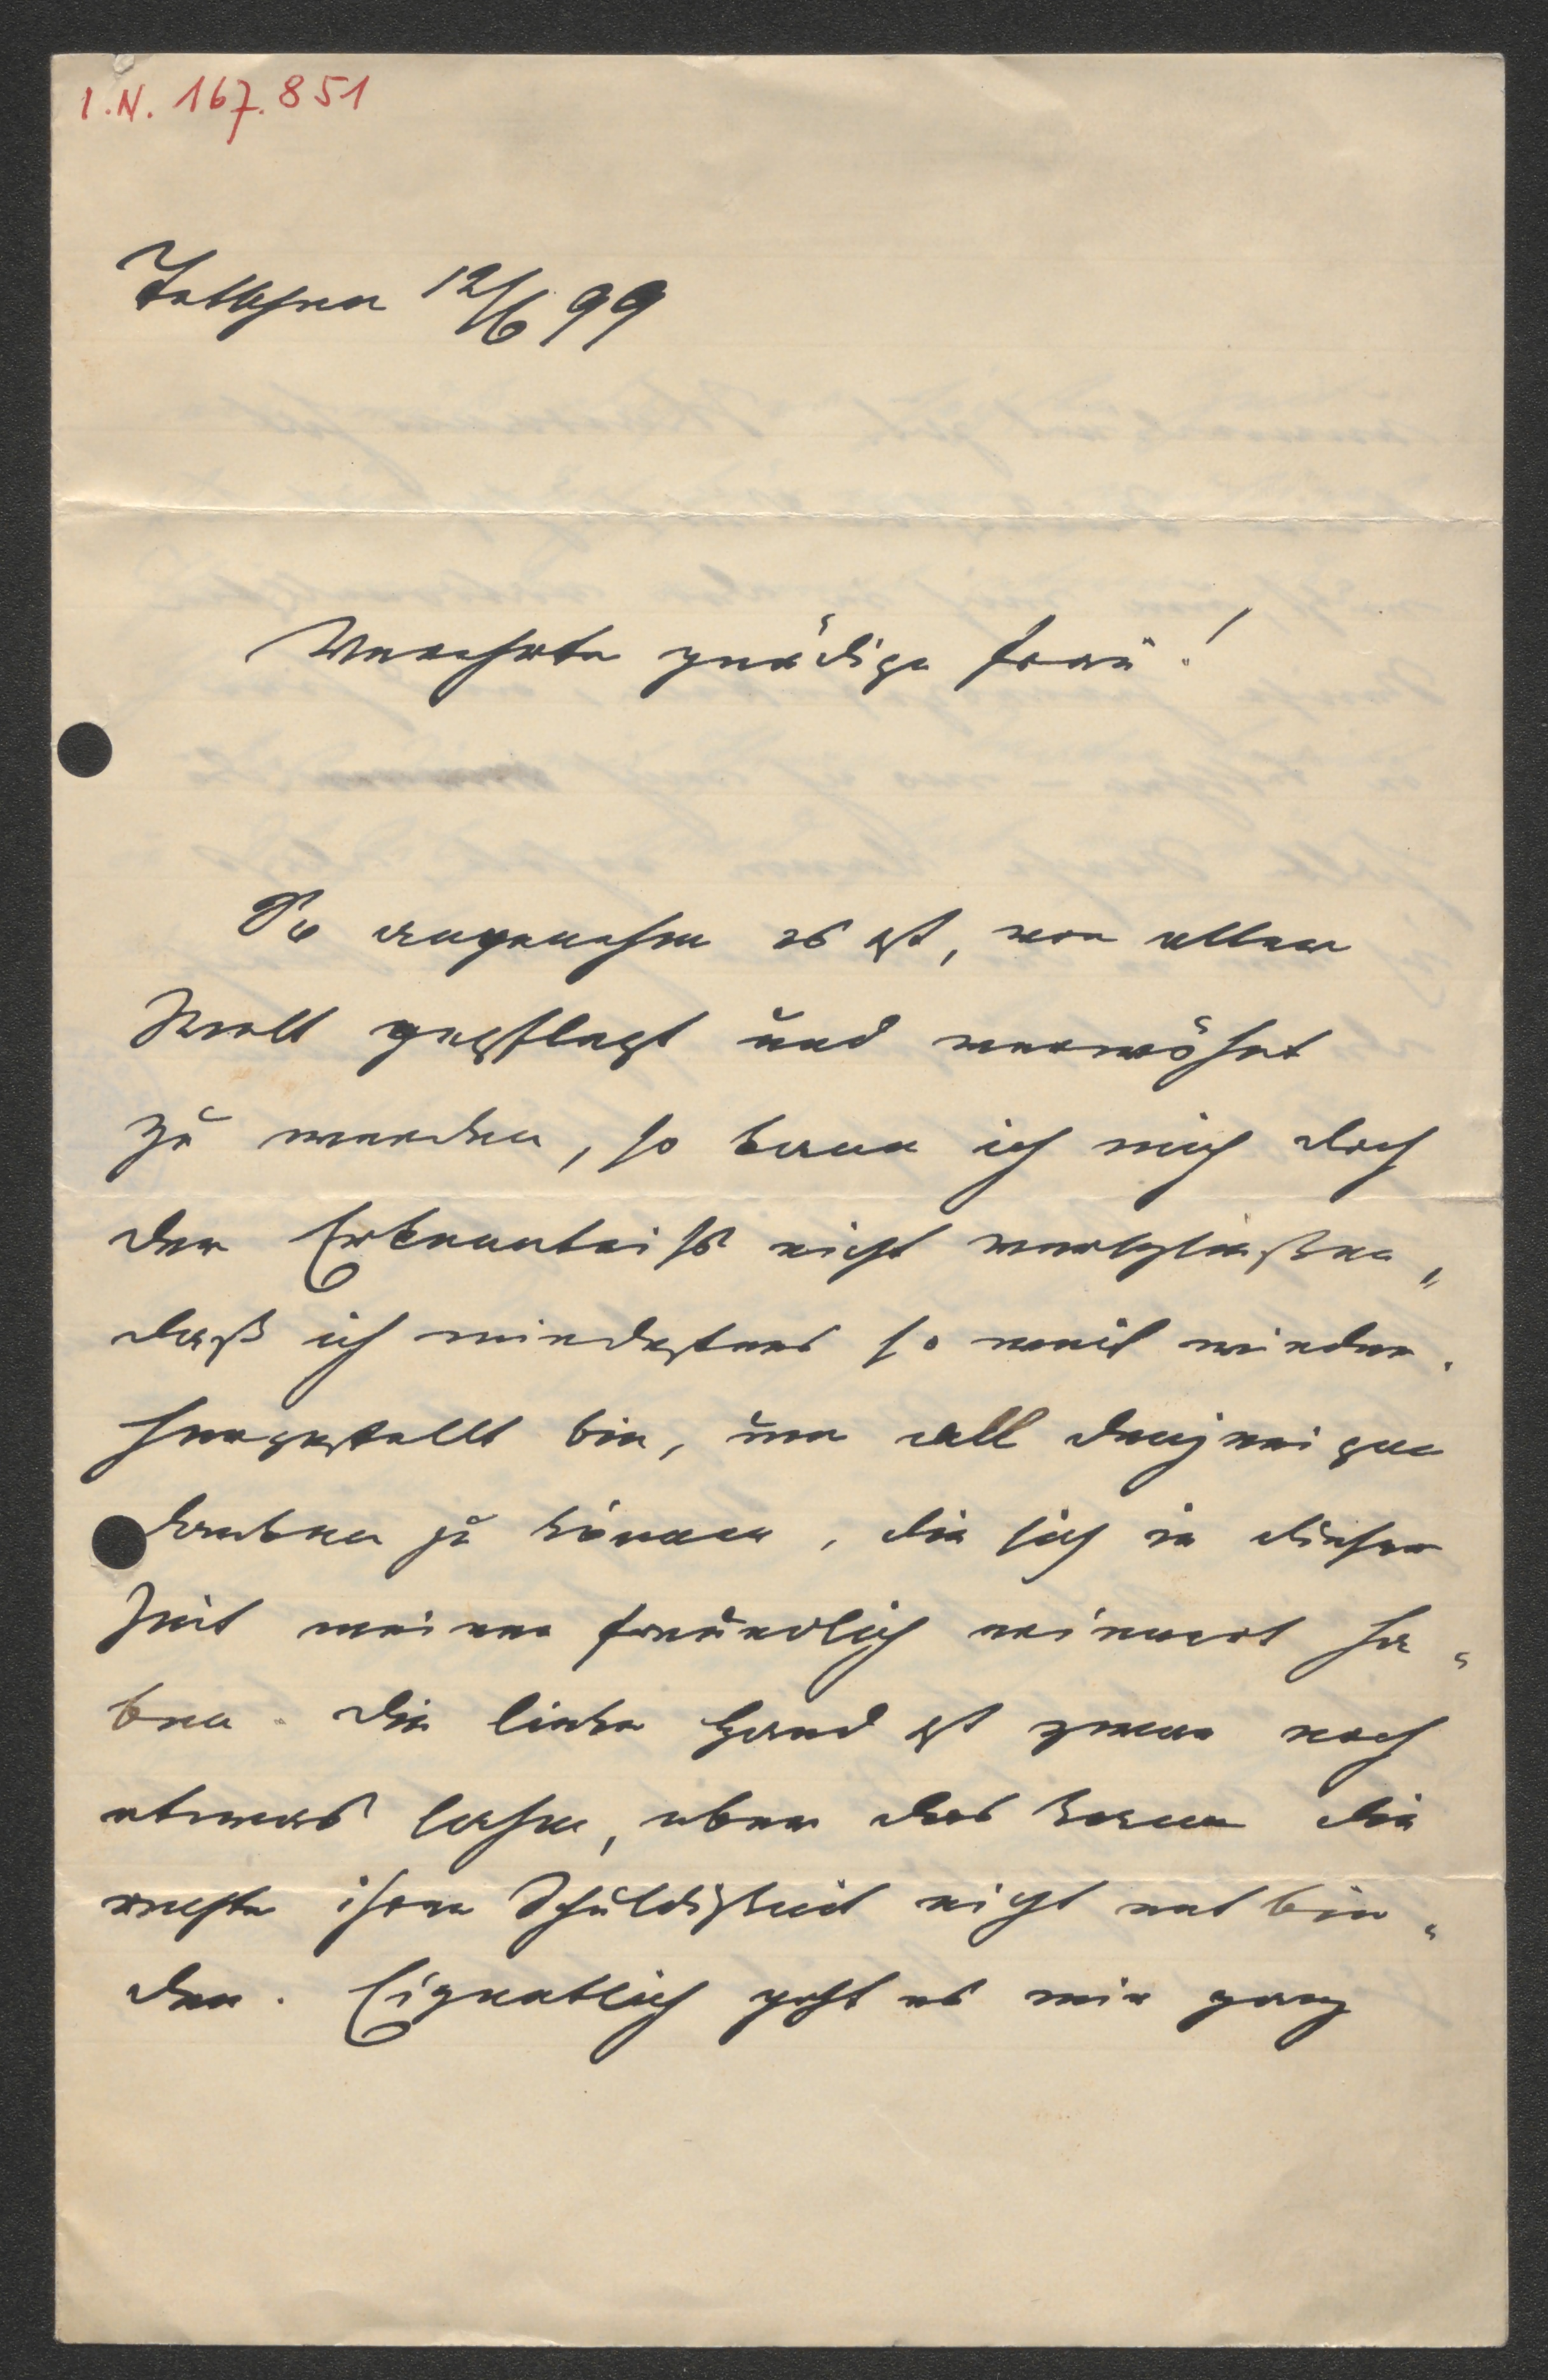 I.N. 167.851
Kalksburg 12/6 99
Verehrte gnädige Frau!
So angenehm es ist, von aller
Welt gepflegt und verwöhnt
zu werden, so kann ich mich doch
der Erkenntniß nicht verschließen,
daß ich mindestens so weit wieder-
hergestellt bin, um all denjenigen
danken zu können, die sich in dieser
Zeit meiner freundlich erinnert ha-
ben. Die linke Hand ist zwar noch
etwas lahm, aber das kann die
rechte ihrer Schuldigkeit nicht entbin-
den. Eigentlich geht es mir ganz